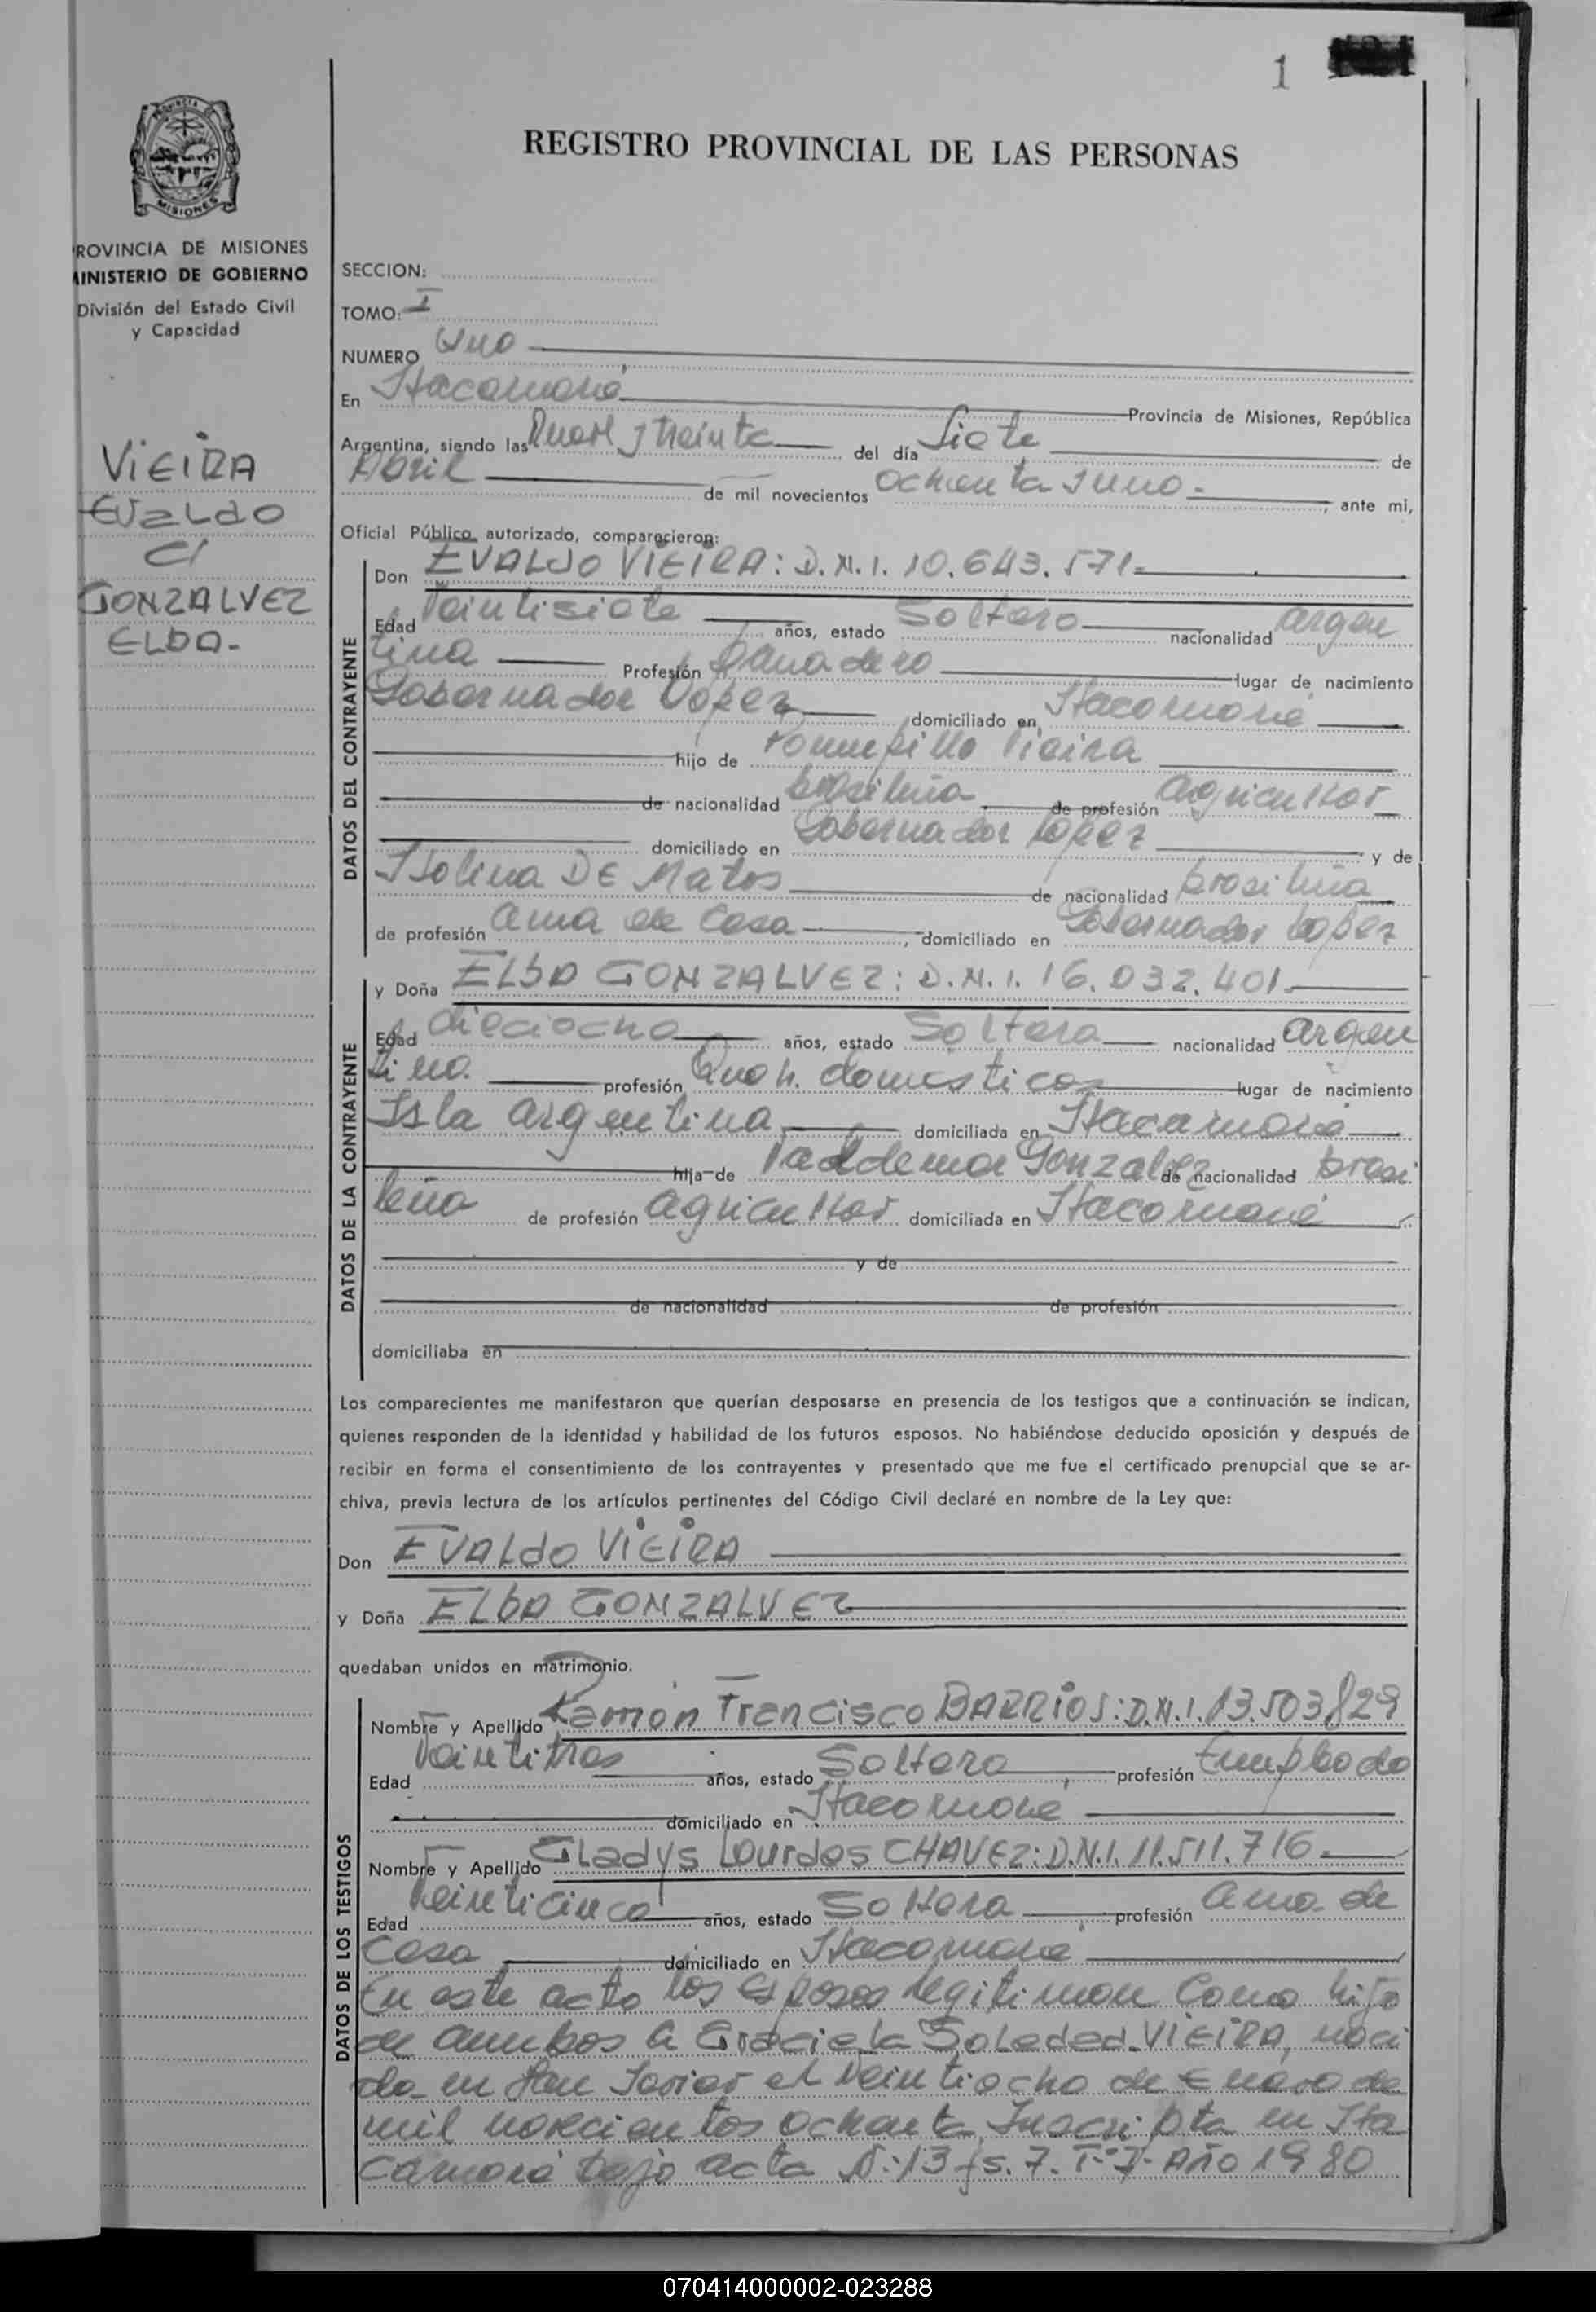 1
REGISTRO PROVINCIAL DE LAS PERSONAS
MISIONES
ROVINCIA DE MISIONES
MINISTERIO DE GOBIERNO
División del Estado Civil
y Capacidad
VIEIRA
EValdo
C/
GONZALVEZ
ELDA.-
SECCION:
TOMO: I
NUMERO Uno
En Itacaruaré Provincia de Misiones, República
Argentina, siendo las Nueve y treinta del día Siete de
Abril de mil novecientos ochenta y uno.- , ante mi,
Oficial Público autorizado, comparecieron:
DATOS DEL CONTRAYENTE
Don EVALDO VIEIRA: D.N.I. 10.643.571.-
Edad Veintisiete años, estado Soltero nacionalidad argen
tina Profesión Panadero lugar de nacimiento
Gobernador López domiciliado en Itacaruaré
hijo de Vieira
de nacionalidad brasileña de profesión agricultor
domiciliado en Gobernador López y de
Isolina DE Matos de nacionalidad brasileña
de profesión ama de casa , domiciliado en Gobernador López
DATOS DE LA CONTRAYENTE
y Doña ELDA GONZALVEZ: D.N.I. 16.032.401.-
Edad dieciocho años, estado Soltera nacionalidad argen
tina. profesión Queh. domesticos lugar de nacimiento
Isla argentina domiciliada en Itacaruaré
hija de Gonzalvez de nacionalidad brasi
leña de profesión agricultor domiciliada en Itacaruaré
y de
de nacionalidad de profesión
domiciliaba en
Los comparecientes me manifestaron que querían desposarse en presencia de los testigos que a continuación se indican,
quienes responden de la identidad y habilidad de los futuros esposos. No habiéndose deducido oposición y después de
recibir en forma el consentimiento de los contrayentes y presentado que me fue el certificado prenupcial que se ar-
chiva, previa lectura de los artículos pertinentes del Código Civil declaré en nombre de la Ley que:
Don EVALdo VIEIRA
y Doña ELDA GONZALVEZ
quedaban unidos en matrimonio.
DATOS DE LOS TESTIGOS
Nombre y Apellido Ramón Francisco BARRIOS: D.N.I. 13.503.829
Edad Veintitres años, estado Soltero profesión Empleado
domiciliado en Itacaruaré
Nombre y Apellido Gladys Lourdes CHAVEZ: D.N.I. 11.511.716.-
Edad Veinticinco años, estado Soltera profesión ama de
Casa domiciliado en Itacaruaré
En este acto los esposos legitiman Como hija
de ambos a Graciela Soledad VIEIRA, naci
da en San Javier el Veintiocho de Enero de
mil novecientos ochenta, Inscripta en Ita
caruaré bajo acta N:13 fs. 7. T: I- Año 1980
070414000002-023288